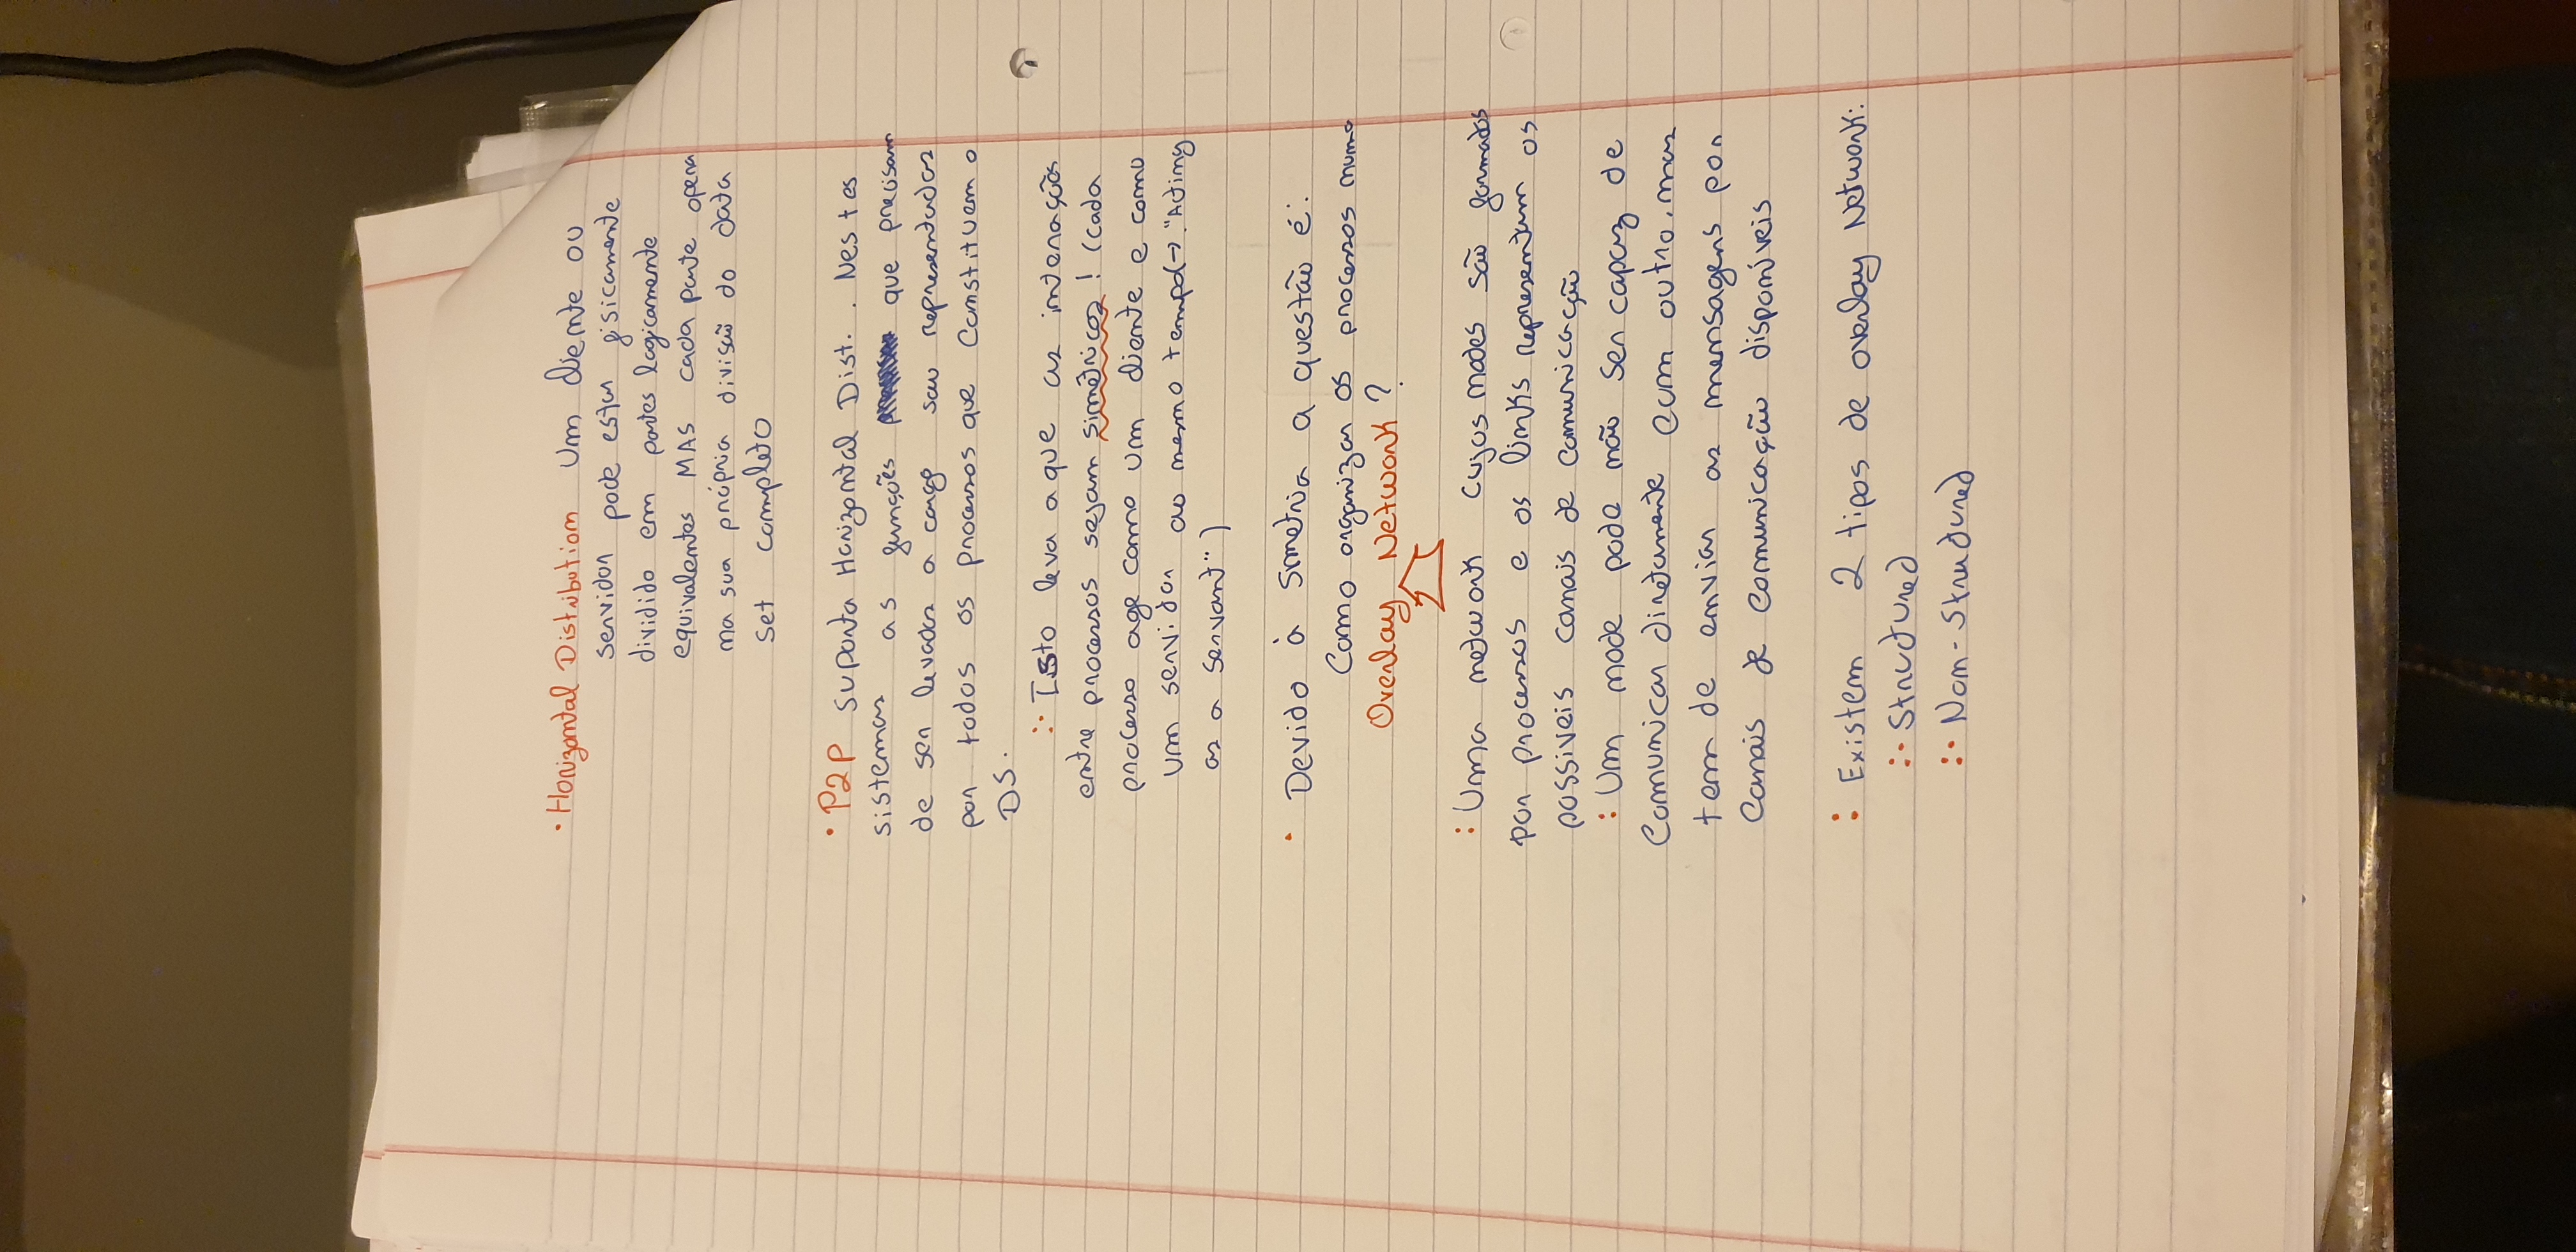 · Horizontal Distribution Um cliente ou
servidor pode estar fisicamente
dividido em partes logicamente
equivalentes MAS cada parte opera
na sua própria divisão do data
set completo
· P2P suporta Horizontal Dist. . Nestes
sistemas as funções que precisam
de ser levadas a cargo são representadas
por todos os processos que constituem o
DS.
:· Isto leva a que as interações
entre processos sejam simétricas! (cada
processo age como um cliente e como
um servidor ao mesmo tempo(→ "Acting
as a Servant")
· Devido à Simetria a questão é:
Como organizar os processos numa
Overlay Network?
: Uma network cujos nodes são formados
por processos e os links representam os
possiveis canais de comunicação
: Um node pode não ser capaz de
comunicar diretamente com outro, mas
tem de enviar as mensagens por
canais de comunicação disponíveis
: Existem 2 tipos de overlay Network:
:· Structured
:· Non-Structured